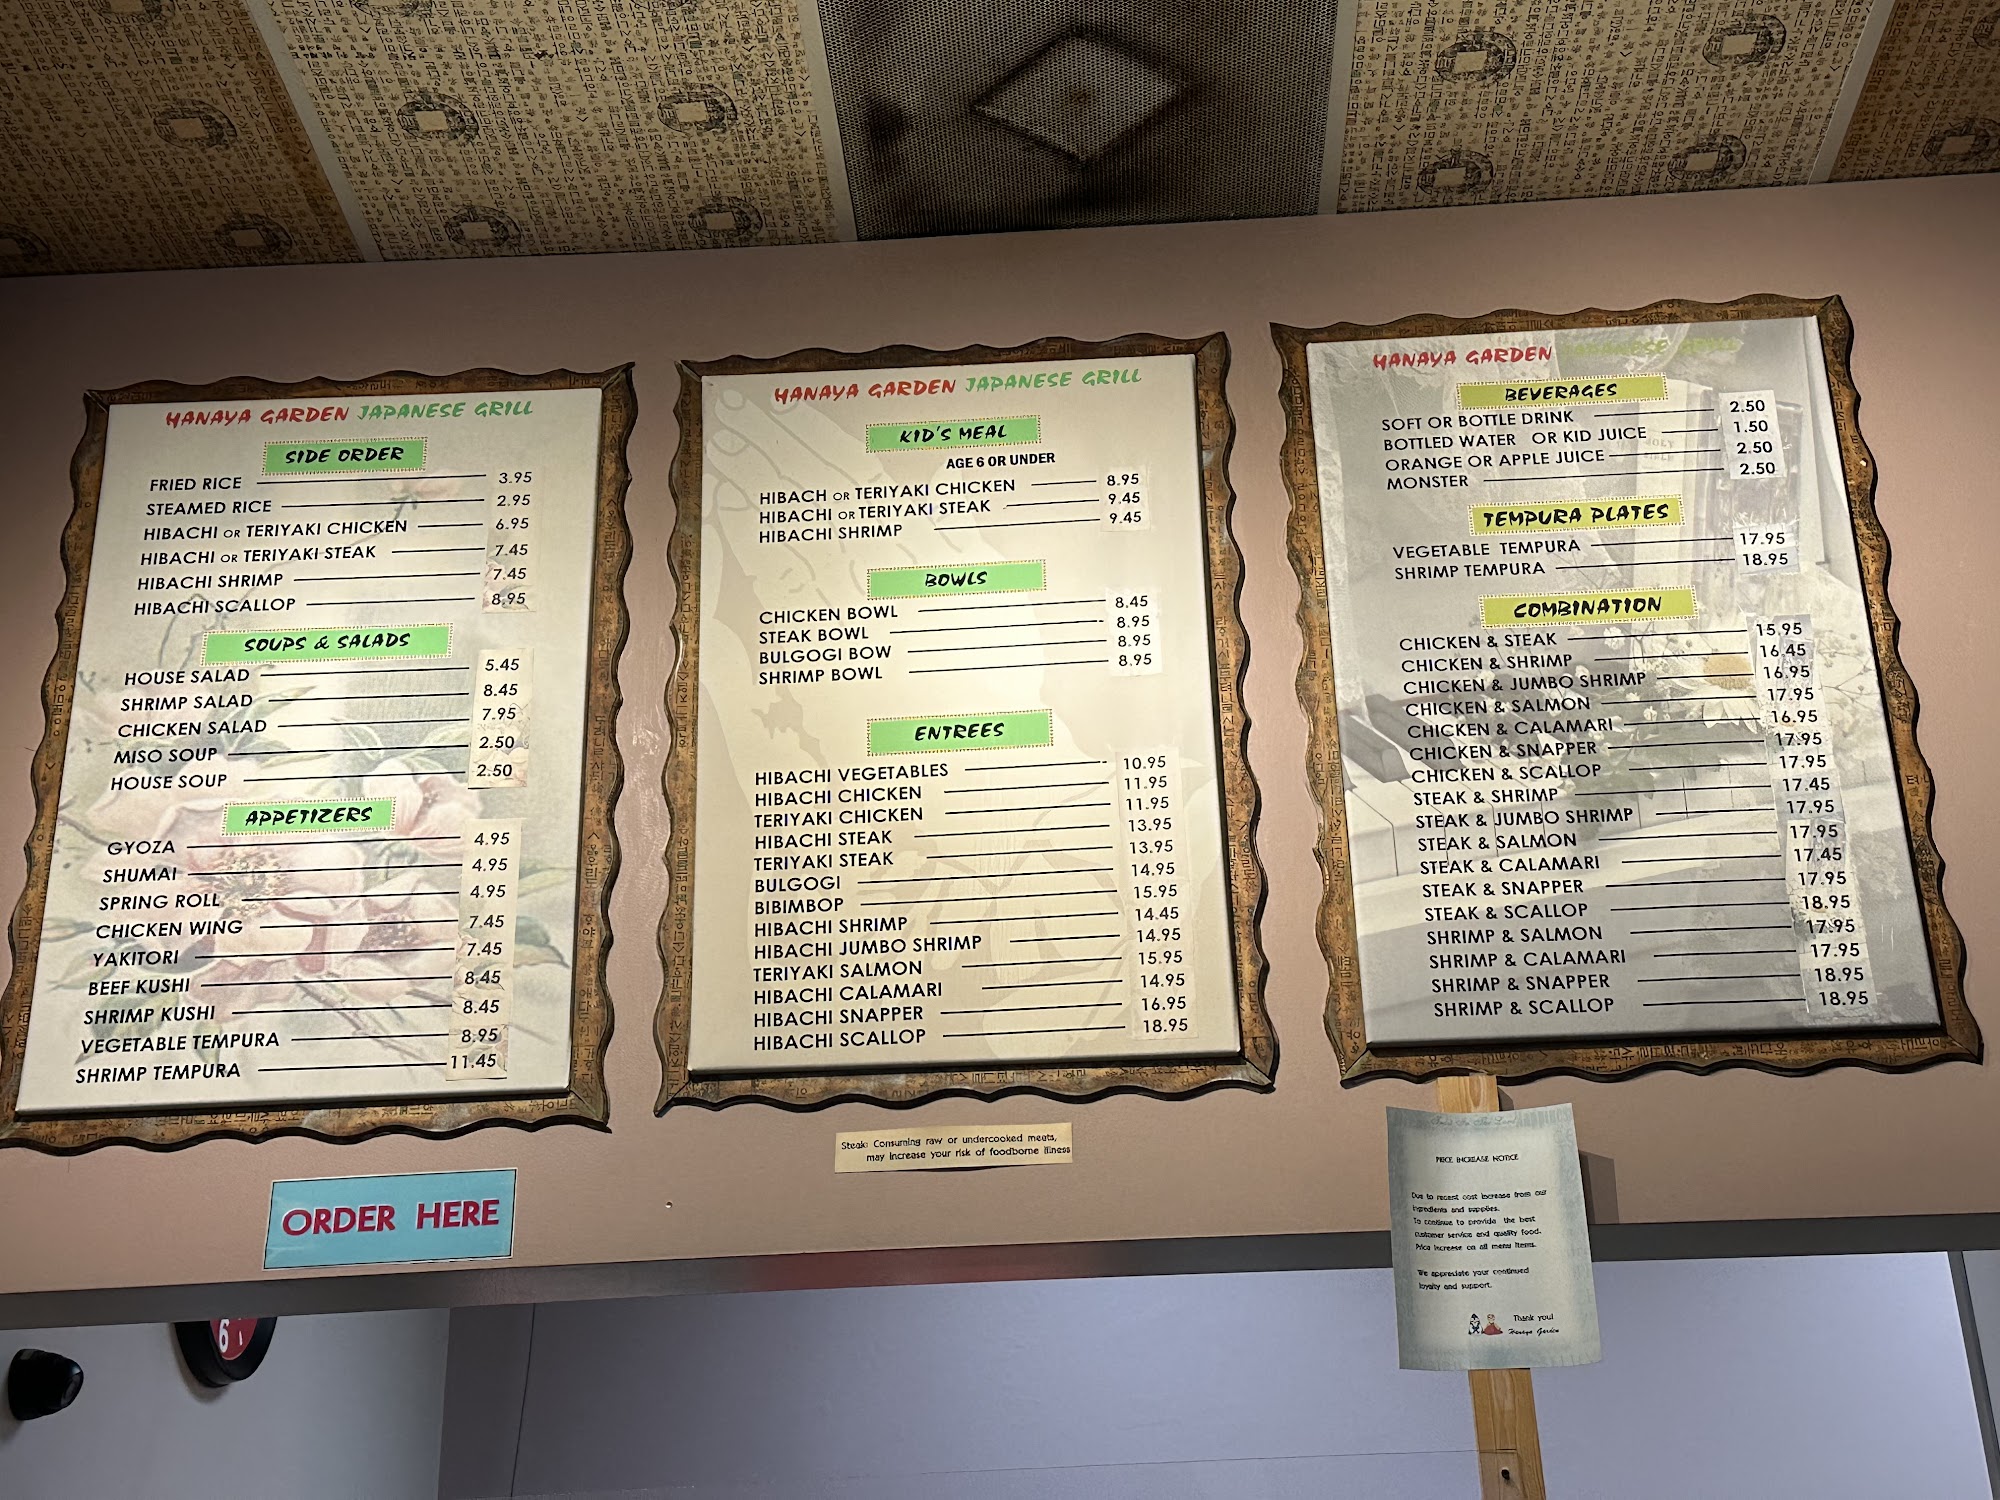 HANAYA GARDEN JAPANESE GRILL
SIDE ORDER
FRIED RICE 3.95
STEAMED RICE 2.95
HIBACHI OR TERIYAKI CHICKEN 6.95
HIBACHI OR TERIYAKI STEAK 7.45
HIBACHI SHRIMP 7.45
HIBACHI SCALLOP 8.95
SOUPS & SALADS
HOUSE SALAD 5.45
SHRIMP SALAD 8.45
CHICKEN SALAD 7.95
MISO SOUP 2.50
HOUSE SOUP 2.50
APPETIZERS
GYOZA 4.95
SHUMAI 4.95
SPRING ROLL 4.95
CHICKEN WING 7.45
YAKITORI 7.45
BEEF KUSHI 8.45
SHRIMP KUSHI 8.45
VEGETABLE TEMPURA 8.95
SHRIMP TEMPURA 11.45
ORDER HERE
HANAYA GARDEN JAPANESE GRILL
KID'S MEAL
AGE 6 OR UNDER
HIBACH OR TERIYAKI CHICKEN 8.95
HIBACHI OR TERIYAKI STEAK 9.45
HIBACHI SHRIMP 9.45
BOWLS
CHICKEN BOWL 8.45
STEAK BOWL 8.95
BULGOGI BOW 8.95
SHRIMP BOWL 8.95
ENTREES
HIBACHI VEGETABLES 10.95
HIBACHI CHICKEN 11.95
TERIYAKI CHICKEN 11.95
HIBACHI STEAK 13.95
TERIYAKI STEAK 13.95
BULGOGI 14.95
BIBIMBOP 15.95
HIBACHI SHRIMP 14.45
HIBACHI JUMBO SHRIMP 14.95
TERIYAKI SALMON 15.95
HIBACHI CALAMARI 14.95
HIBACHI SNAPPER 16.95
HIBACHI SCALLOP 18.95
Steak: Consuming raw or undercooked meats,
may increase your risk of foodborne illness
HANAYA GARDEN JAPANESE GRILL
BEVERAGES
SOFT OR BOTTLE DRINK 2.50
BOTTLED WATER OR KID JUICE 1.50
ORANGE OR APPLE JUICE 2.50
MONSTER 2.50
TEMPURA PLATES
VEGETABLE TEMPURA 17.95
SHRIMP TEMPURA 18.95
COMBINATION
CHICKEN & STEAK 15.95
CHICKEN & SHRIMP 16.45
CHICKEN & JUMBO SHRIMP 16.95
CHICKEN & SALMON 17.95
CHICKEN & CALAMARI 16.95
CHICKEN & SNAPPER 17.95
CHICKEN & SCALLOP 17.95
STEAK & SHRIMP 17.45
STEAK & JUMBO SHRIMP 17.95
STEAK & SALMON 17.95
STEAK & CALAMARI 17.45
STEAK & SNAPPER 17.95
STEAK & SCALLOP 18.95
SHRIMP & SALMON 17.95
SHRIMP & CALAMARI 17.95
SHRIMP & SNAPPER 18.95
SHRIMP & SCALLOP 18.95
PRICE INCREASE NOTICE
Due to recent cost increase from our
ingredients and supplies.
To continue to provide the best
customer service and quality food.
Price increase on all menu items.
We appreciate your continued
loyalty and support.
Thank you!
Hanaya Garden
6